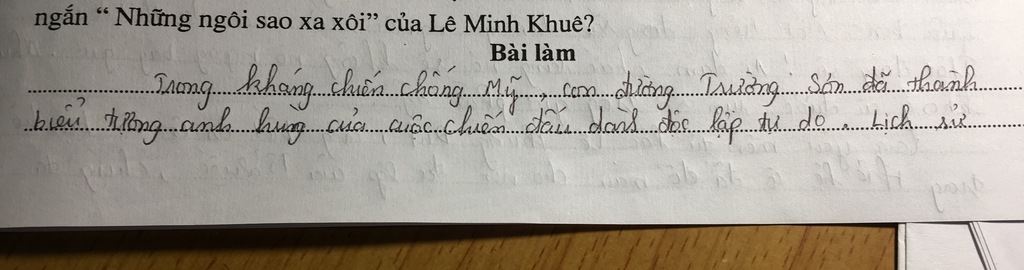 ngắn “ Những ngôi sao xa xôi” của Lê Minh Khuê?
Bài làm
Trong kháng chiến chống Mỹ, con đường Trường Sơn đã thành
biểu tượng anh hùng của cuộc chiến đấu dành độc lập tự do. Lịch sử